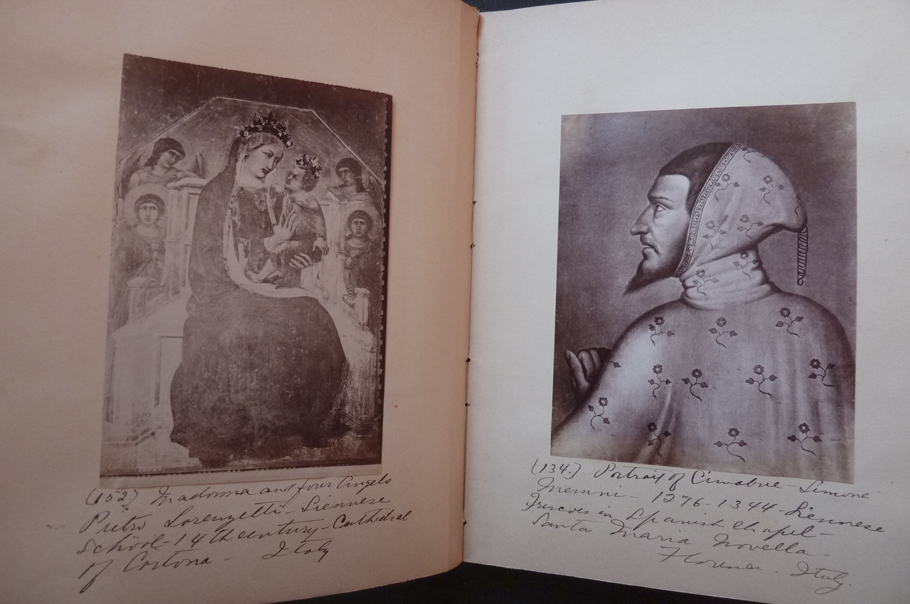 (152) Madonna and four Angels
Pietro Lorenzetti - Siennese
School - 14th century - Cathedral
of Cortona - Italy
(134.) Portrait of Cimabue - Simone
Memmi - 1276 - 1344 - Siennese
Frescoes in Spanish Chapel -
Santa Maria Novella -
Florence. Italy.